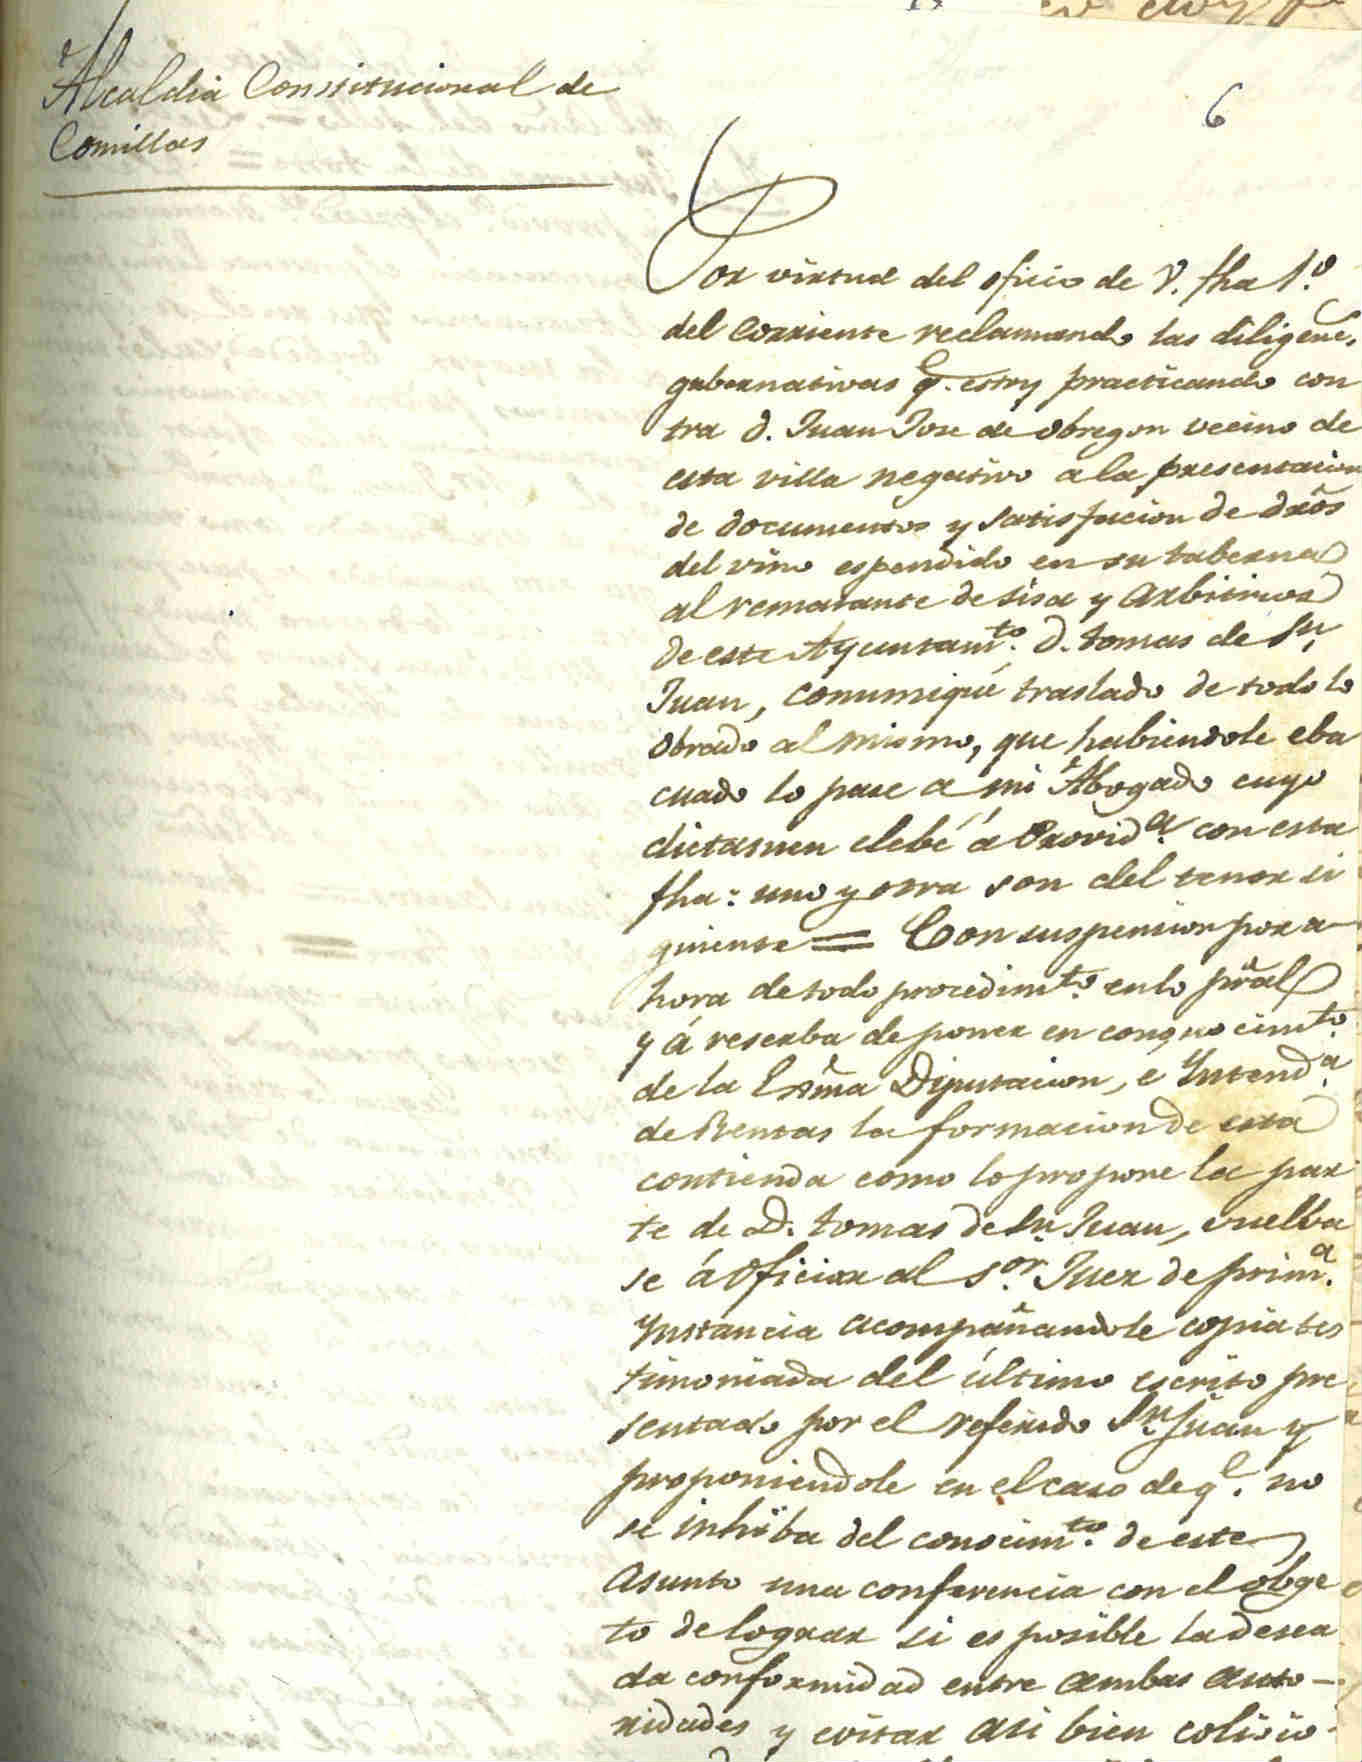 Alcaldia Constitucional de
Comillas
6
Por virtud del oficio de V. fha 1.º
del corriente reclamando las diligenc.s
gubernativas q.e estoy practicando con
tra D. Juan Jose de Obregon vecino de
esta villa negativo a la presentacion
de documentos y satisfacion de dros
del vino espendido en su taberna
al rematante de sisa y arbitrios
de este Ayuntam.to D. Tomas de Sn.
Juan, comuniqué traslado de todo lo
obrado al mismo, que habiendole eba
cuado lo pase a mi Abogado cuyo
dictamen elebé á Provid.a con esta
fha: uno y otra son del tenor si
guiente = Con suspension por a
hora de todo procedim.to en lo pral
y á reserba de poner en conocim.to
de la Exma Diputacion, é Yntend.a
de Rentas la formacion de esta
contienda como lo propone la par
te de D. Tomas de Sn. Juan, vuelba
se á oficiar al S.or Juez de prim.a
Ynstancia acompañandole copia tes
timoniada del último escrito pre
sentado por el referido Sn. Juan y
proponiendole en el caso de q.e no
se inhiba del conocim.to de este
asunto una conferencia con el obge
to de lograr si es posible la desea
da conformidad entre ambas auto-
ridades y evitar asi bien colisio